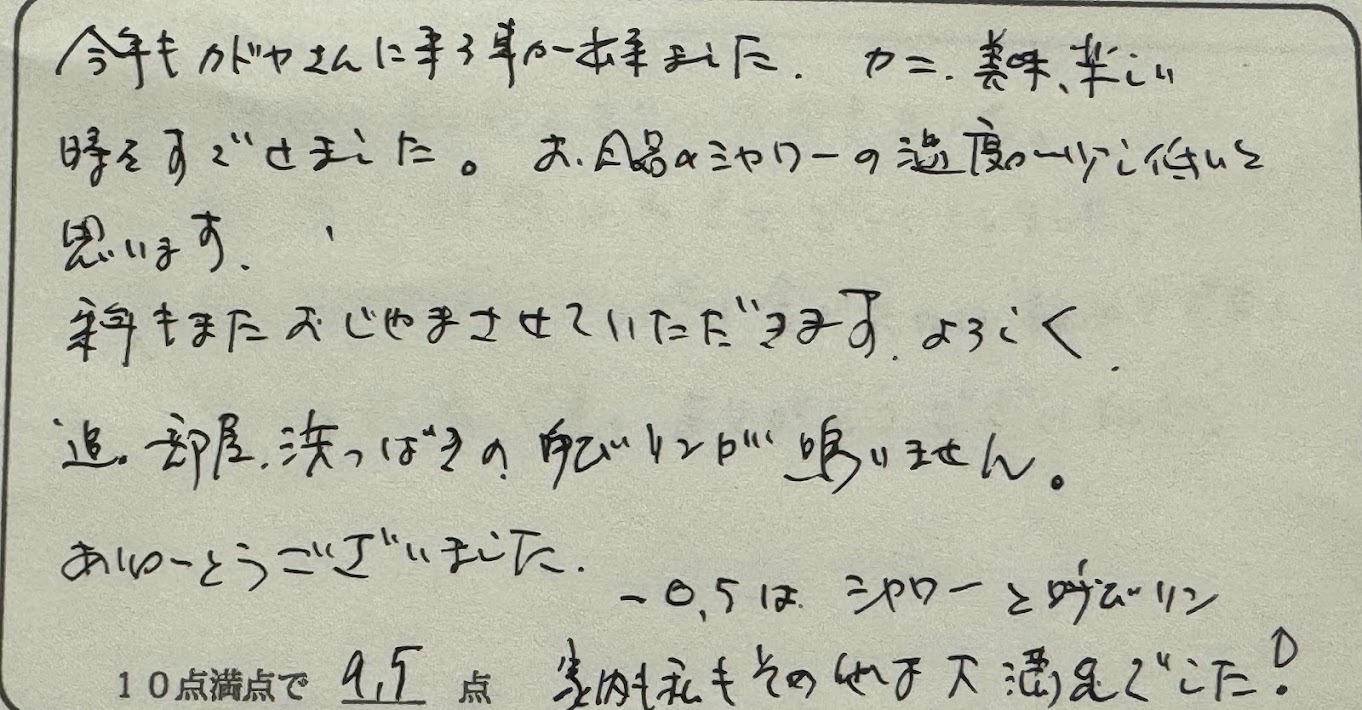 今年もカドヤさんに来る事が出来ました. カニ. 美味、楽しい
時をすごせました。 お風呂のシャワーの温度が少し低いと
思います.
来年もまたおじゃまさせていただきます. よろしく.
追。部屋. 洗っばきの 呼びリンが 鳴りません。
ありがとうございました.
-0,5は シャワーと呼びリン
10点満点で 9,5 点 家内も私もその他は大満足でした!